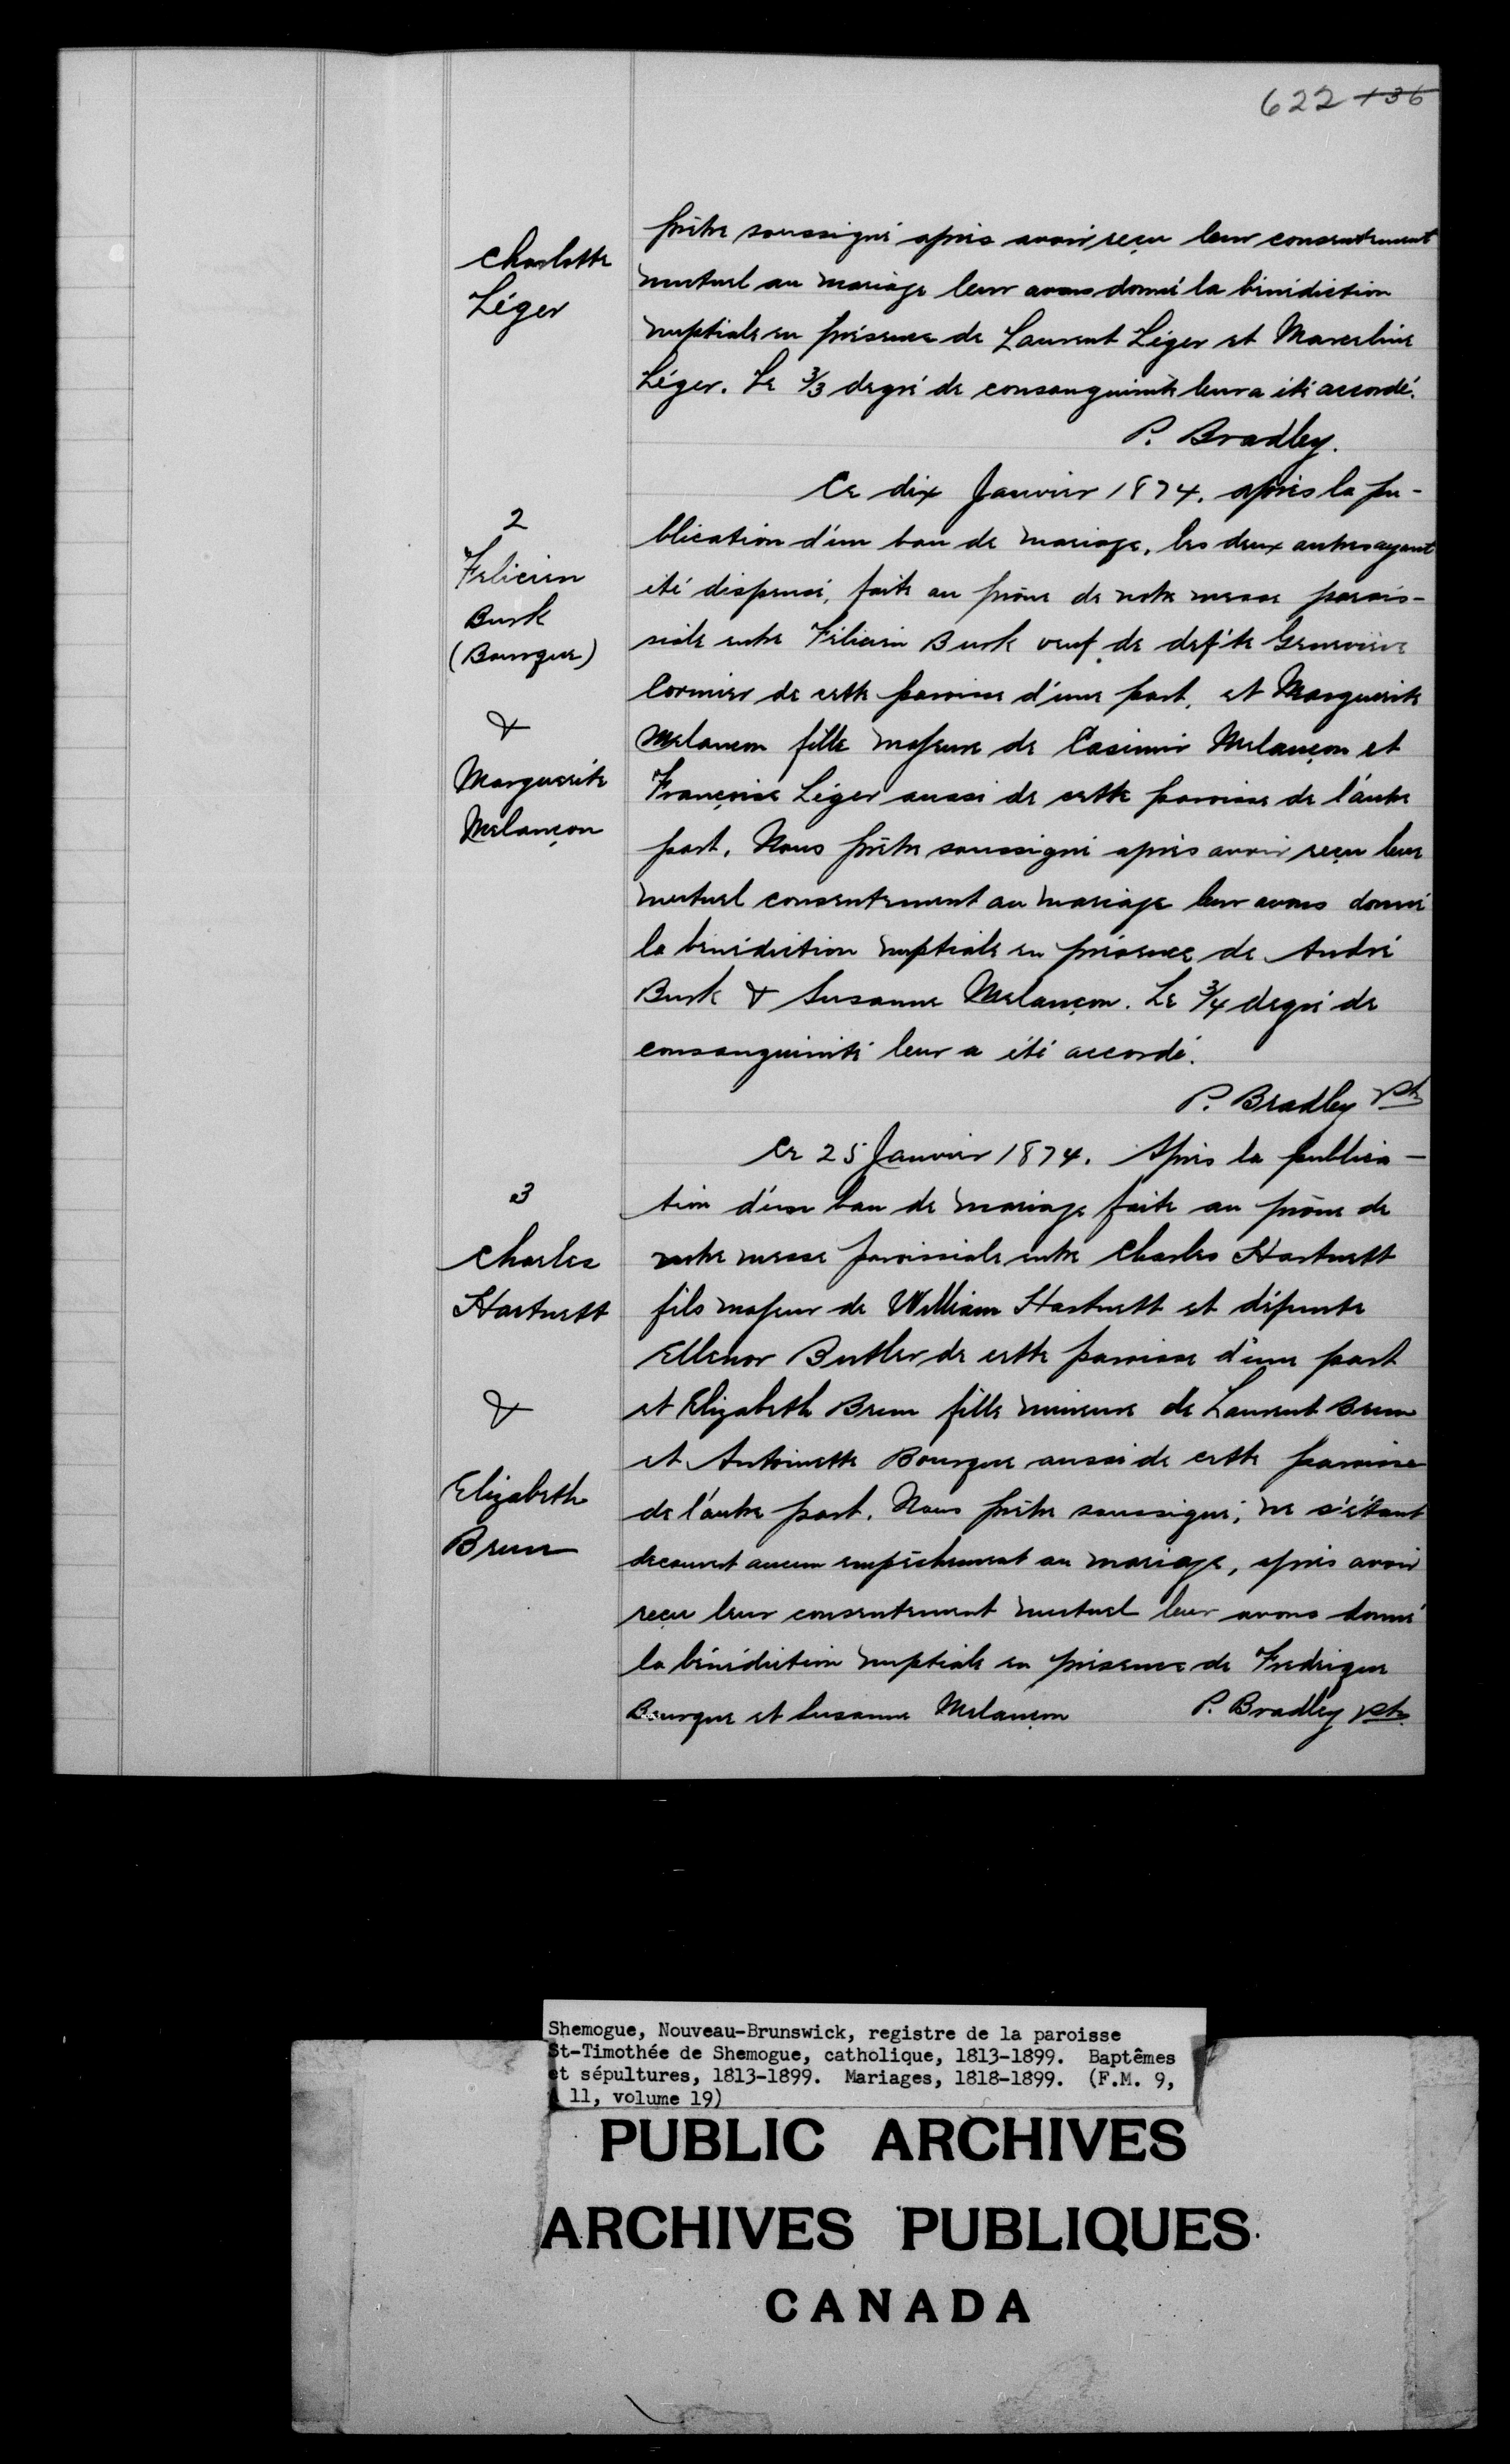 622 136
Charlotte
Léger
prêtre soussigné après avoir reçu leur consentement
mutuel au mariage leur avons donné la bénédiction
nuptiale en présence de Laurent Léger et Marceline
Léger. Le 3/3 degré de consanguinité leur a été accordé.
P. Bradley.
2
Felicien
Burk
(Bourque)
&
Marguerite
Melançon
Ce dix Janvier 1874, après la pu-
blication d'un ban de mariage, les deux autres ayant
été dispensé, faite au prône de notre messe parois-
siale entre Félicien Burk veuf de def'te Genevieve
Cormier de cette paroisse d'une part, et Marguerite
Melancon fille majeure de Casimir Melançon et
Françoise Léger aussi de cette paroisse de l'autre
part. Nous prêtre soussigné après avoir reçu leur
mutuel consentement au mariage leur avons donné
la bénédiction nuptiale en présence de André
Burk & Susanne Melançon. Le 3/4 degré de
consanguinité leur a été accordé.
P. Bradley Ptr
3
Charles
Hartnett
&
Elizabeth
Brun
Ce 25 Janvier 1874. Après la publica-
tion d'un ban de mariage faite au prône de
notre messe paroissiale entre Charles Hartnett
fils majeur de William Hartnett et défunte
Ellenor Butler de cette paroisse d'une part
et Elizabeth Brun fille mineure de Laurent Brun
et Antoinette Bourque aussi de cette paroisse
de l'autre part. Nous prêtre soussigné, ne s'étant
decouvert aucun empêchement au mariage, après avoir
reçu leur consentement mutuel leur avons donné
la bénédiction nuptiale en présence de Fredrique
Bourque et Susanne Melançon P. Bradley Ptr.
Shemogue, Nouveau-Brunswick, registre de la paroisse
St-Timothée de Shemogue, catholique, 1813-1899. Baptêmes
et sépultures, 1813-1899. Mariages, 1818-1899. (F.M. 9,
A 11, volume 19)
PUBLIC ARCHIVES
ARCHIVES PUBLIQUES
CANADA